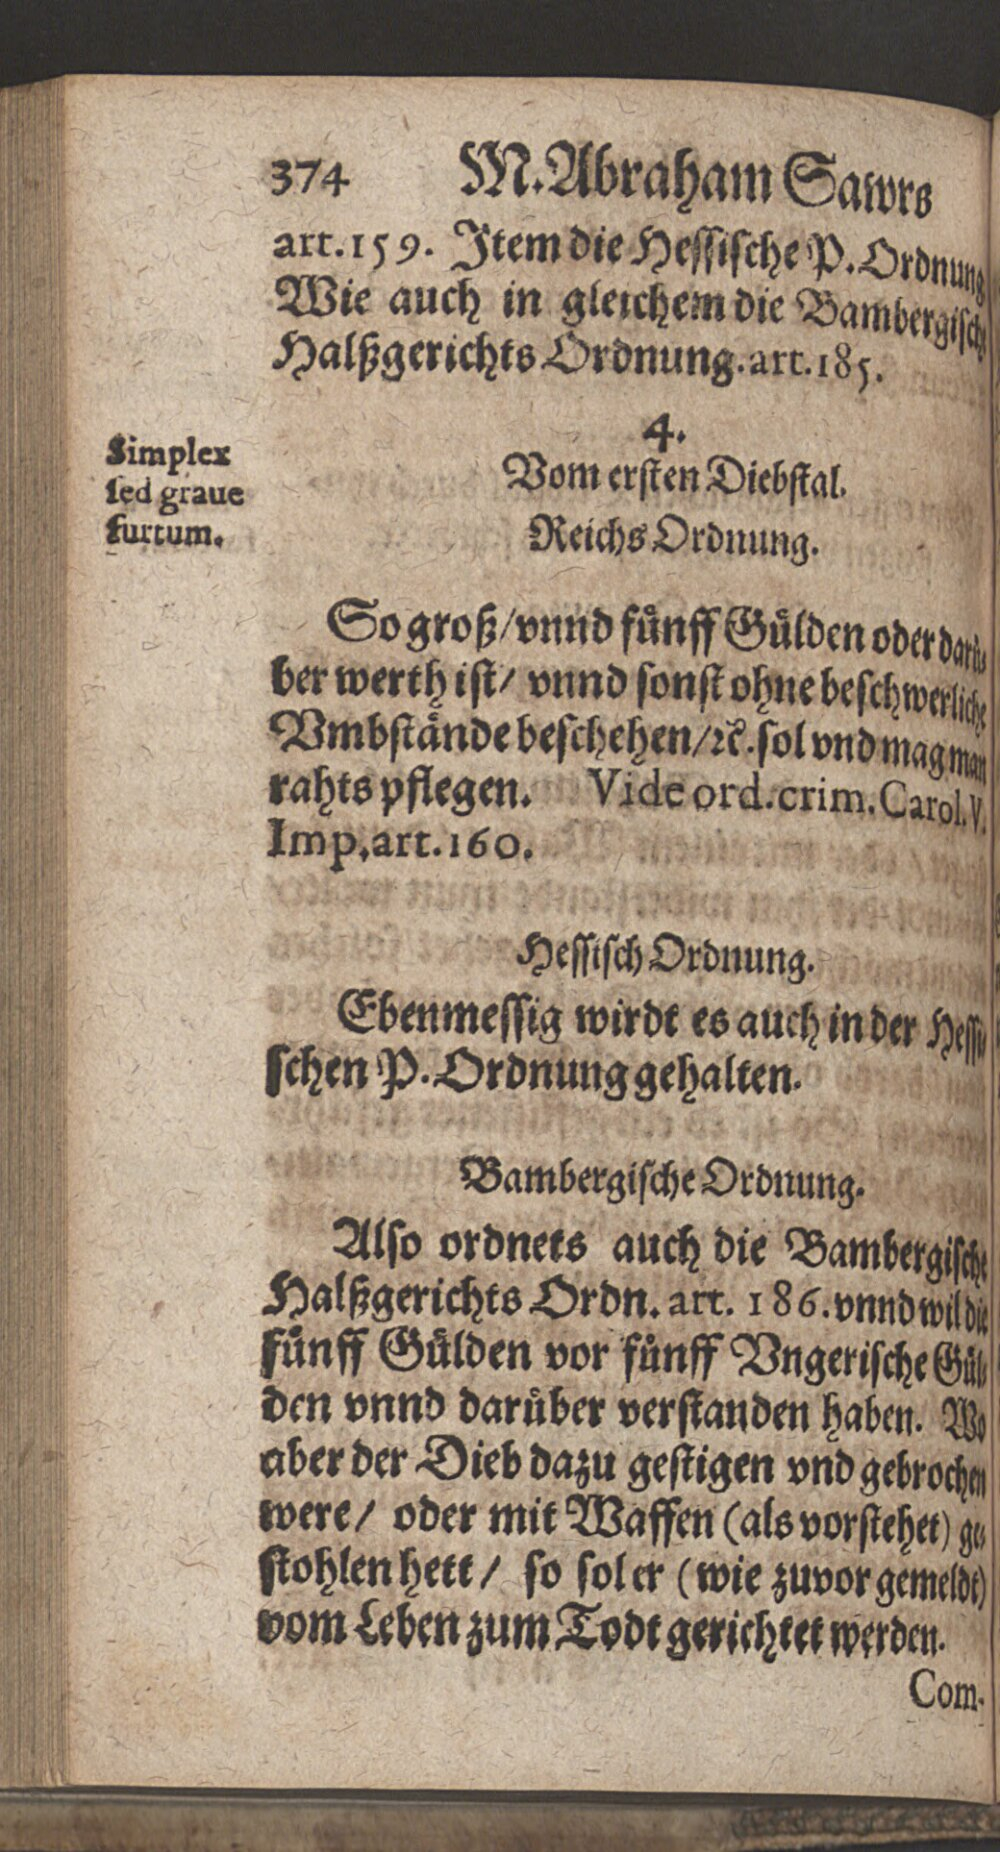 374 M. Abraham Sawrs
art. 159. Item die Hessische P. Ordnung
Wie auch in gleichem die Bambergische
Halßgerichts Ordnung. art. 185.
4.
Simplex
sed graue
furtum.
Vom ersten Diebstal.
Reichs Ordnung.
So groß / vnnd fuͤnff Guͤlden oder daruͤ-
ber werth ist / vnnd sonst ohne beschwerliche
Vmbstaͤnde beschehen / ꝛc. sol vnd mag man
rahts pflegen. Vide ord. crim. Carol. V.
Imp, art. 160.
Hessisch Ordnung.
Ebenmessig wirdt es auch in der Hessi-
schen P. Ordnung gehalten.
Bambergische Ordnung.
Also ordnets auch die Bambergische
Halßgerichts Ordn. art. 186. vnnd wil die
fuͤnff Guͤlden vor fuͤnff Vngerische Guͤl-
den vnnd daruͤber verstanden haben. Wo
aber der Dieb dazu gestigen vnd gebrochen
were / oder mit Waffen (als vorstehet) ge-
stohlen hett / so sol er (wie zuvor gemeldt)
vom Leben zum Todt gerichtet werden.
Com-